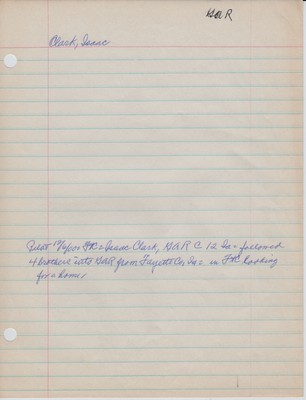 GAR
Clark, Isaac
Pilot Isaac Clark, GAR C 12 In = followed
4 brothers into GAR from Fayette Co, Ind in FK looking
for a home.